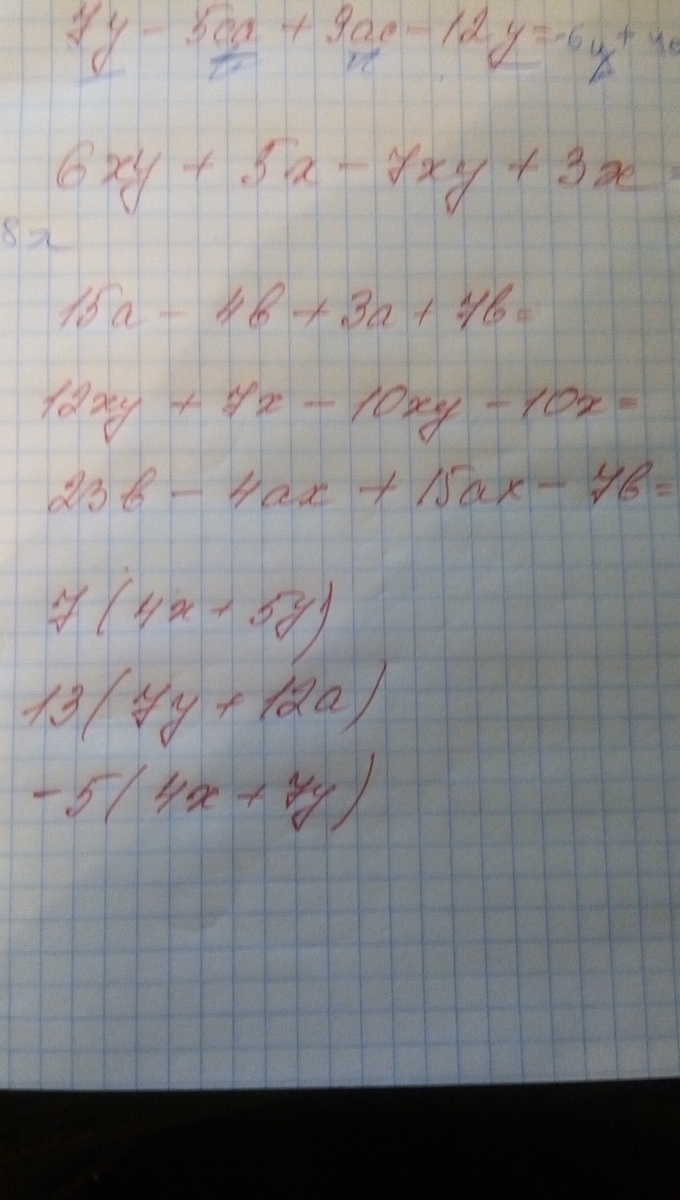 7y - 5ca + 9ac - 12y = -6y +
6xy + 5x - 7xy + 3x =
8x
15a - 4b + 3a + 7b =
12xy + 7x - 10xy - 10x =
23b - 4ax + 15ax - 7b =
7(4x + 5y)
13(7y + 12a)
-5(4x + 7y)